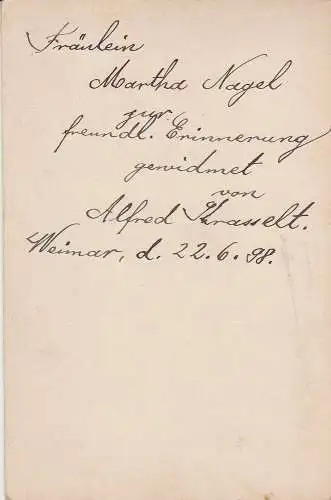 Fräulein
Martha Nagel
zur
freundl. Erinnerung
gewidmet
von
Alfred Krasselt.
Weimar, d. 22.6.98.